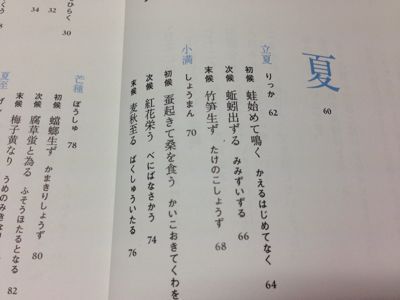 夏 60
立夏 りっか 62
初候 蛙始めて鳴く かえるはじめてなく 64
次候 蚯蚓出ずる みみずいずる 66
末候 竹笋生ず たけのこしょうず 68
小満 しょうまん 70
初候 蚕起きて桑を食う かいこおきてくわを
次候 紅花栄う べにばなさかう 74
末候 麦秋至る ばくしゅういたる 76
芒種 ぼうしゅ 78
初候 蟷螂生ず かまきりしょうず 80
次候 腐草蛍と為る ふそうほたるとなる 82
末候 梅子黄なり うめのみきな
夏至
30
32
34